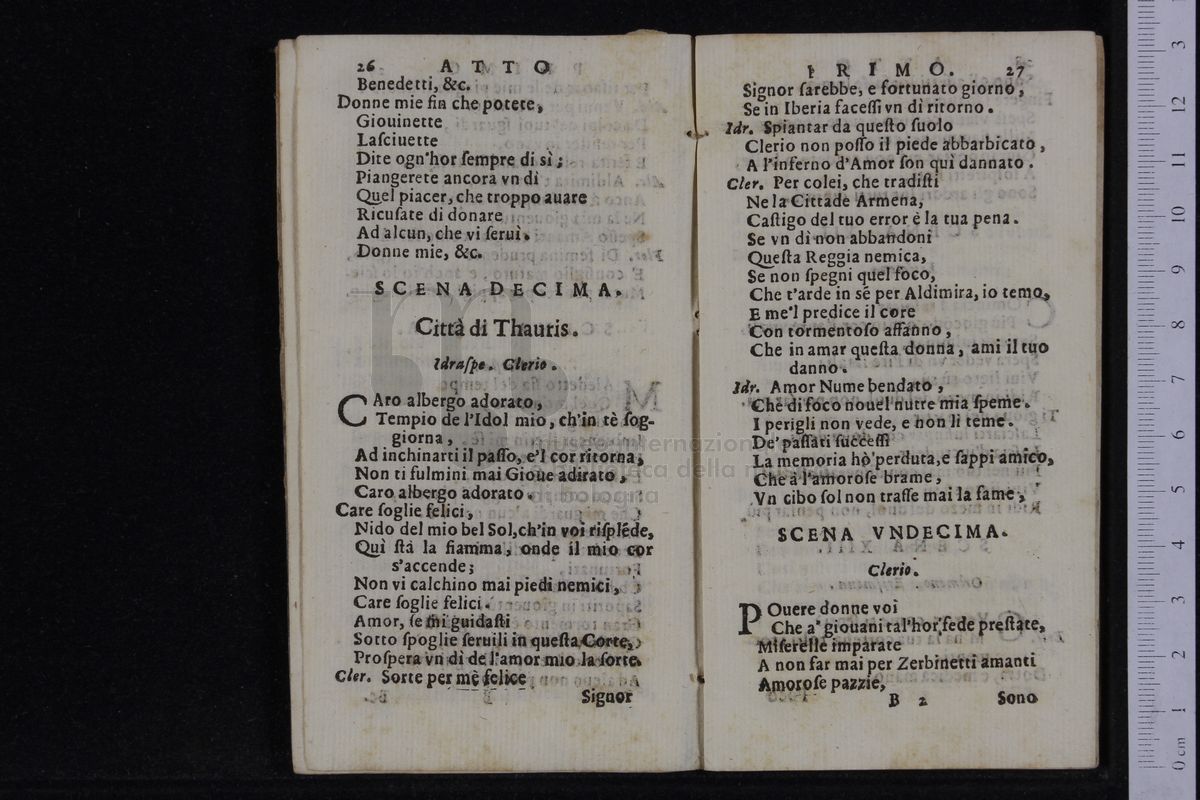 26 ATTO
Benedetti, &c.
Donne mie fin che potete,
Giouinette
Laſciuette
Dite ogn'hor ſempre di sì;
Piangerete ancora vn dì
Quel piacer, che troppo auare
Ricuſate di donare
Ad alcun, che vi ſeruì.
Donne mie, &c.
SCENA DECIMA.
Città di Thauris.
Idraſpe. Clerio.
CAro albergo adorato,
Tempio de l'Idol mio, ch'in tè ſog-
giorna,
Ad inchinarti il paſſo, e'l cor ritorna,
Non ti fulmini mai Gioue adirato,
Caro albergo adorato.
Care ſoglie felici,
Nido del mio bel Sol,ch'in voi riſplẽde,
Quì ſtà la fiamma, onde il mio cor
s'accende;
Non vi calchino mai piedi nemici,
Care ſoglie felici.
Amor, ſe mi guidaſti
Sotto ſpoglie ſeruili in queſta Corte,
Proſpera vn dì de l'amor mio la ſorte.
Cler. Sorte per mè felice
Signor
PRIMO. 27
Signor ſarebbe, e fortunato giorno,
Se in Iberia faceſſi vn dì ritorno.
Idr. Spiantar da queſto ſuolo
Clerio non poſſo il piede abbarbicato,
A l'inferno d'Amor ſon quì dannato.
Cler. Per colei, che tradiſti
Ne la Cittade Armena,
Caſtigo del tuo error è la tua pena.
Se vn dì non abbandoni
Queſta Reggia nemica,
Se non ſpegni quel foco,
Che t'arde in sẽ per Aldimira, io temo,
E me'l predice il core
Con tormentoſo affanno,
Che in amar queſta donna, ami il tuo
danno.
Idr. Amor Nume bendato,
Che di foco nouel nutre mia ſpeme.
I perigli non vede, e non li teme.
De' paſſati ſucceſſi
La memoria hò perduta,e ſappi amico,
Che à l'amoroſe brame,
Vn cibo ſol non traſſe mai la fame,
SCENA VNDECIMA.
Clerio.
POuere donne voi
Che a' giouani tal'hor fede preſtate,
Miſerelle imparate
A non far mai per Zerbinetti amanti
Amoroſe pazzie,
B 2 Sono
museo internazionale
e biblioteca della musica
di bologna
0 cm 1 2 3 4 5 6 7 8 9 10 11 12 13